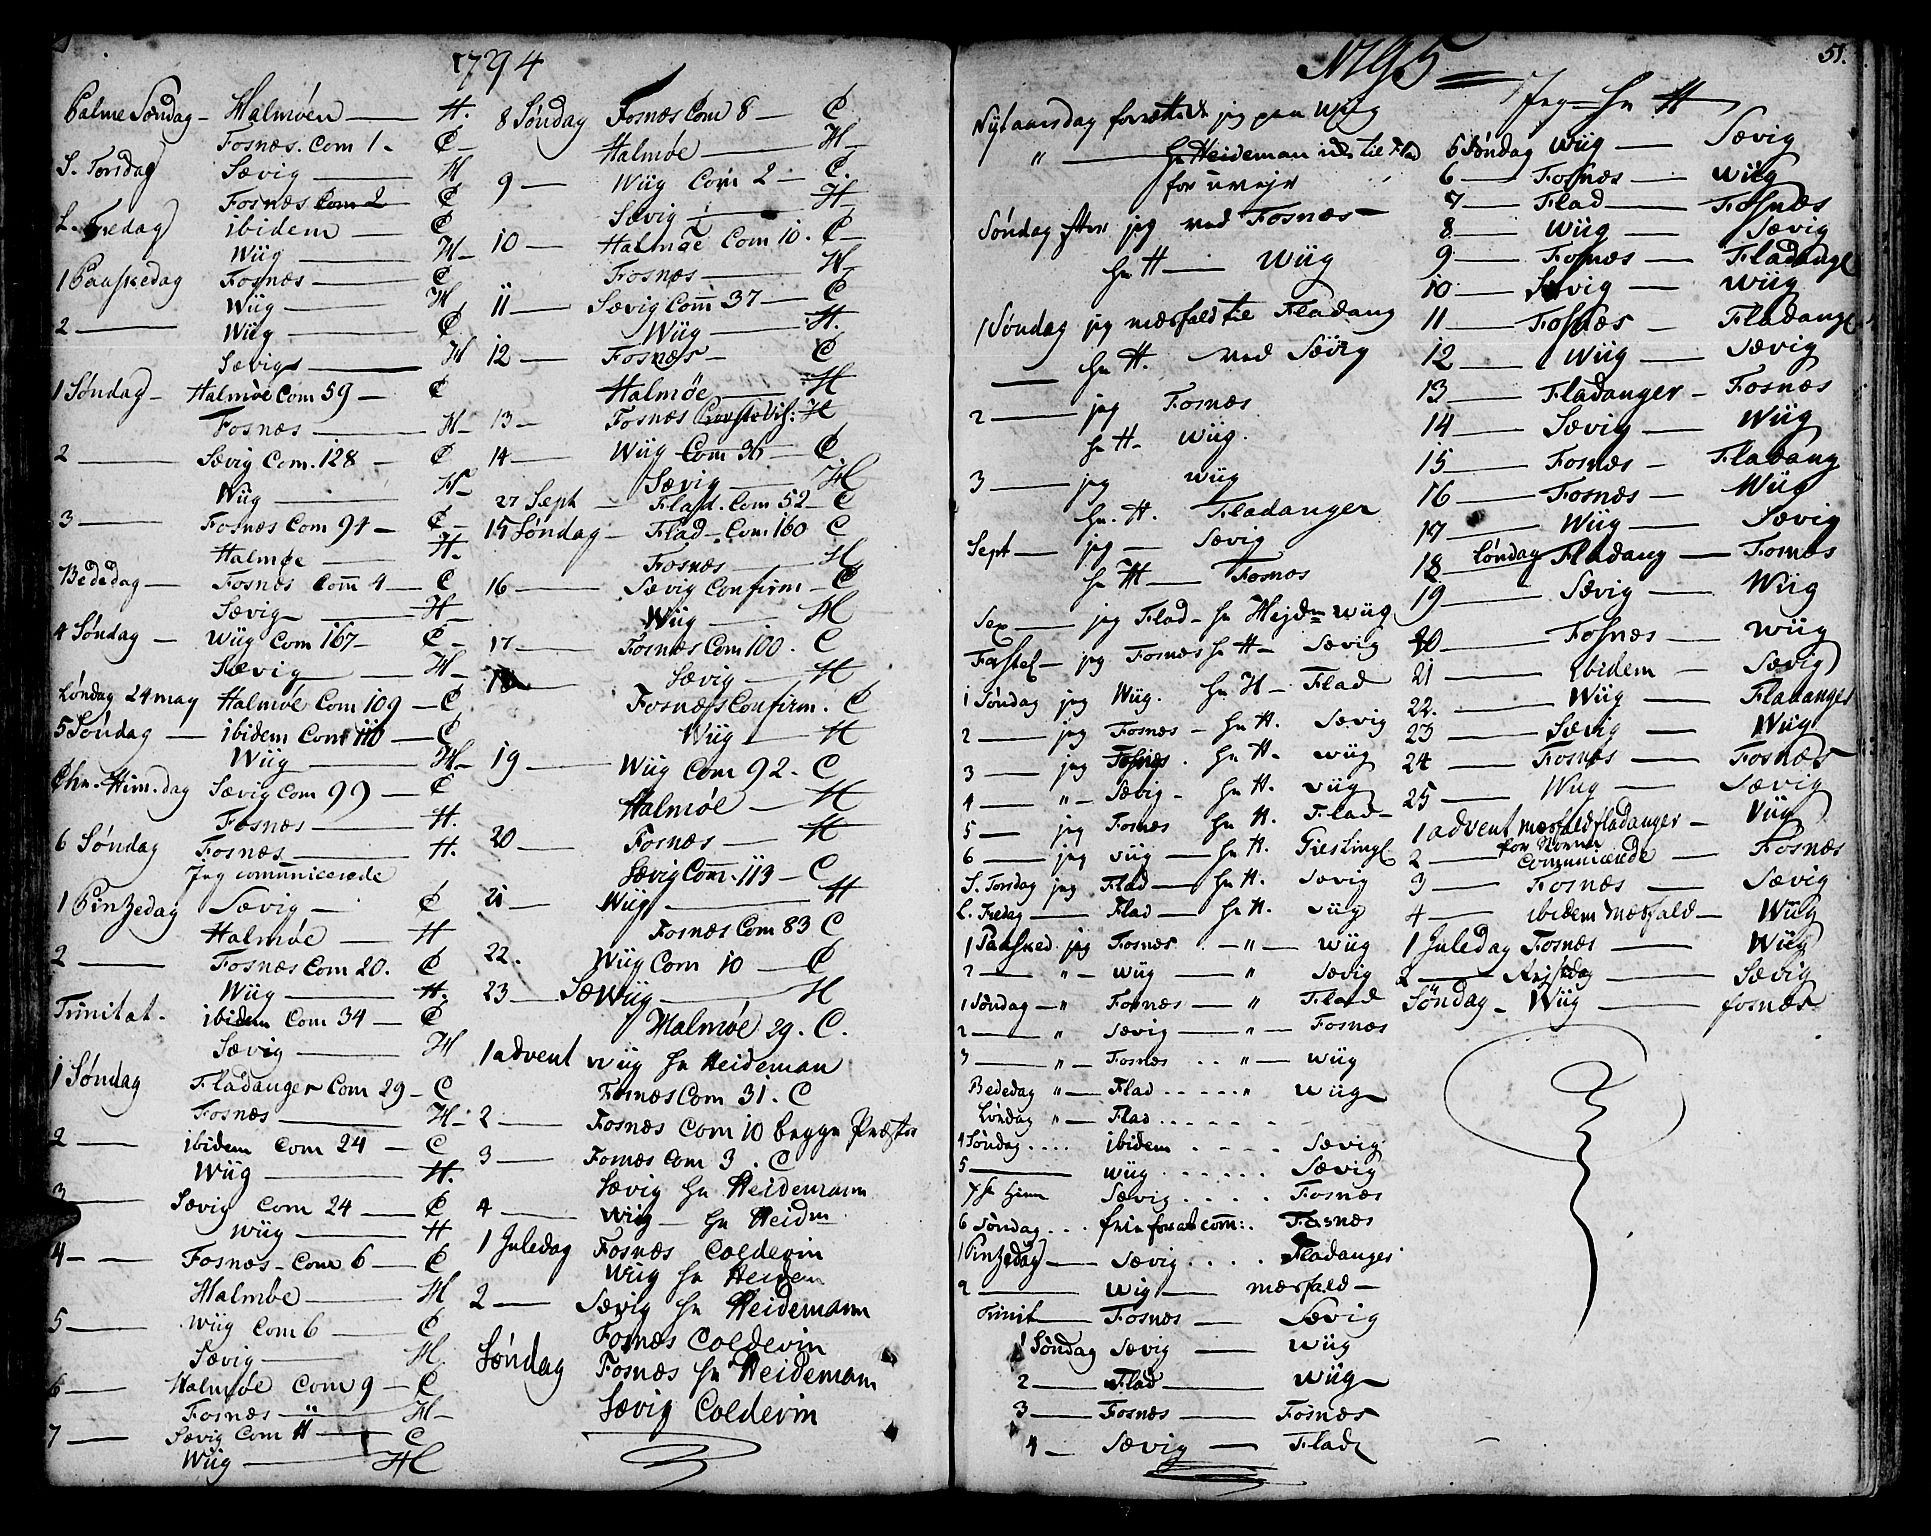 1794
Palme Søndag - Halmøen — H.
Fosnæs. Com 1. ₵
S. Torsdag Sævig — H
Fosnæs Com 2 ₵
L. Fredag ibidem — ₵
Wüg — H
1 Paaskedag Fosnæs — ₵
Wüg — H
2 — Wüg — ₵
Sævig — H
1 Søndag - Halmøe Com 59 — ₵
Fosnæs — H
2 — Sævig Com. 128 — ₵
Wüg — H
3 — Fosnæs Com 94 — ₵
Halmøe — H.
Bededag — Fosnæs Com 4 — ₵
Sævig — H
4 Søndag — Wüg Com 167 - ₵
Sævig — H
Løndag 24 may Halmøe Com 109 — ₵
5 Søndag — ibidem Com 110 — ₵
Wüg — H
Chr. Him. dag Sævig Com 99 — ₵
Fosnæs — H.
6 Søndag Fosnæs — H.
Jeg communicerede
1 Pintzedag Sævig — ₵
Halmøe — H
2 — Fosnæs Com 20. ₵
Wüg — H.
Trinitat. ibidem Com 34 — ₵
Sævig — H
1 Søndag Fladanger Com 29 - C
Fosnæs — H
2 — ibidem Com 24 — C
Wüg — H.
3 — Sævig Com 24 — ₵
Wüg — H
4 — Fosnæs - Com 6 — ₵
Halmøe — H
5 — Wüg Com 6 — ₵
Sævig — H
6 — Halmøe Com 9 — ₵
Fosnæs — H
7 — Sævig Com 11 — C
Wüg — H
8 Søndag Fosnæs Com 8 — ₵
Halmøe — H
9 — Wüg Com 2 — ₵.
Sævig — H
10 — Halmøe Com 10. ₵
Fosnæs — H
11 — Sævig Com 37 — ₵
Wüg — H.
12 — Fosnæs — ₵
Halmøe — H
13 — Fosnæs H
14 — Wüg Com 36 — ₵
Sævig — H
27 Sept — Flad. Com 52 — C
15 Søndag — Flad — Com 160 C
Fosnæs — H
16 — Sævig Confirm — ₵
Wüg — H
17 — Fosnæs Com 100. C
Sævig — H
18 — Fosnæs Confirm. ₵
Wüg — H
19 — Wüg Com 92. C
Halmøe — H
20 — Fosnæs — H
Sævig Com. 113 — C
21 — Wüg — H
Fosnæs Com 83 C
22. Wüg Com 10 — ₵
23 — Wüg — H
Halmøe 29. C.
1 advent wüg Hr Heideman
Fosnæs Com 31. C
2 — Fosnæs Com 10 begge Præster
3 — Fosnæs Com 3. C
Sævig Hr Heidemann
4 — Wiig — Hr Heidm
1 Juledag Fosnæs Coldevin
Wiig Hr Heidem
2 — Sævig Hr Heidemann
Fosnæs Coldevin
Søndag Fosnæs Hr Heidemann
Sævig Coldevin
1795
51.
Nytaarsdag forrættede jeg paa Wüg
" — Hr Heideman til Flad
for uvejr
Søndag efter jeg ved Fosnæs
Hr H — Wüg
1 Søndag jeg mæsfald til Fladang
— Hr H. ved Sævig
2 — jeg Fosnæs
Hr H. Wüg.
3 — jeg Wüg
Hr. H. Fladanger
Sept — jeg — Sævig
Hr H — Fosnæs
Sex — jeg Flad — Hr Hejdm Wüg
Fastel — jeg Fosnæs Hr H — Sævig
1 Søndag jeg Wüg. Hr H — Flad
2 — jeg Fosnæs — Hr H. Sævig
3 — jeg Fosnæs. Hr H. Wüg
4 — " — Sævig — Hr H. Wüg
5 — jeg Fosnæs Hr H. Flad
6 — jeg Wüg — Hr H.
S. Torsdag jeg Flad — Hr H. Sævig
L. Fredag — Flad — Hr H. Wüg
1 Paasked jeg Fosnæs. — " — Wüg
2 — " — Wüg — " Sævig
1 Søndag — " Fosnæs — " Flad
2 — " Sævig — " — Fosnæs
3 — " — Fosnæs . . " — Wüg
Bededag " — Flad . . . . . " Wüg
Løndag " — Flad . . . . .
4 Søndag . . . . ibidem . . . . Sævig
5 — Wüg . . . . . . Sævig
Sævig . . . . Fosnæs
6 Søndag . . . Fosnæs
1 Pinzedag — Sævig . . . . Fladanger
2 — Wig — mæsfald —
Trinit — Fosnæs — Sævig
1 Søndag Sævig — Wüg
2 — Flad — Wüg
3 — Fosnæs — Fosnæs
4 — Sævig — Flad
Jeg — Hr H
5 Søndag Wüg — Sævig
6 — Fosnæs — Wüg
7 — Flad — Fosnæs
8 — Wüg — Sævig
9 — Fosnæs — Fladang
10 — Sævig — Wüg
11 — Fosnæs — Fladang
12 — Wüg — Sævig
13 — Fladanger — Fosnæs
14 — Sævig — Wüg
15 — Fosnæs — Fladang
16 — Fosnæs — Wüg
17 — Wüg — Sævig
18 Løndag Fladang — Fosnæs
19 — Sævig — Wüg
20 — Fosnæs — Wüg
21 — Ibidem — Sævig
22. — Wüg — Fladanger
23 — Sævig — Wüg
24 — Fosnæs — Fosnæs
25 — Wüg — Sævig
1 advent mæsfald fladanger — Wüg
for Storm
2 — communicerede — Fosnæs
3 — Fosnæs — Sævig
4 — ibidem mæsfald — Wüg
1 Juledag Fosnæs — Wüg
2 — — Sævig
Søndag — Wüg — fosnæs